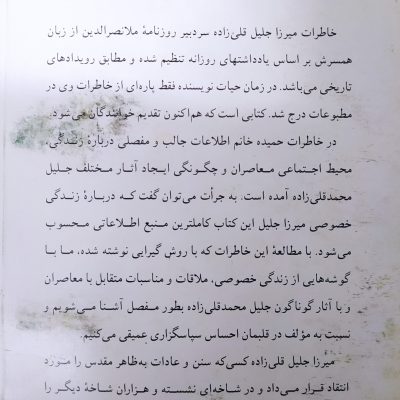 خاطرات میرزا جلیل قلی‌زاده سردبیر روزنامهٔ ملانصرالدین از زبان
همسرش بر اساس یادداشتهای روزانه تنظیم شده و مطابق رویدادهای
تاریخی می‌باشد. در زمان حیات نویسنده فقط پاره‌ای از خاطرات وی در
مطبوعات درج شد. کتابی است که هم‌اکنون تقدیم خوانندگان می‌شود.
در خاطرات حمیده خانم اطلاعات جالب و مفصلی دربارهٔ زندگی،
محیط اجتماعی معاصران و چگونگی ایجاد آثار مختلف جلیل
محمدقلی‌زاده آمده است. به جرأت می‌توان گفت که دربارهٔ زندگی
خصوصی میرزا جلیل این کتاب کاملترین منبع اطلاعاتی محسوب
می‌شود. با مطالعهٔ این خاطرات که با روش گیرایی نوشته شده، ما با
گوشه‌هایی از زندگی خصوصی، ملاقات و مناسبات متقابل با معاصران
و با آثار گوناگون جلیل محمدقلی‌زاده بطور مفصل آشنا می‌شویم و
نسبت به مؤلف در قلبمان احساس سپاسگزاری عمیقی می‌کنیم.
میرزا جلیل قلی‌زاده کسی‌که سنن و عادات به‌ظاهر مقدس را مورد
انتقاد قرار می‌داد و در شاخه‌ای نشسته و هزاران شاخهٔ دیگر را